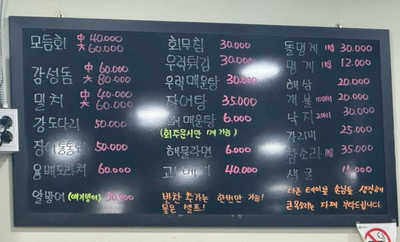 모듬회 中 40.000
大 60.000
감성돔 中 60.000
大 80.000
멸치 中 40.000
大 60.000
강도다리 50.000
50.000
용배도라치 60.000
알방어 (애기방어) 30.000
회무침 30.000
우럭튀김 30.000
우럭매운탕 30.000
장어탕 35.000
매운탕 6.000
(회주문시만 가능!)
해물라면 6.000
40.000
반찬 추가는 한번만 가능!
물은 셀프!
돌멍게 30.000
멍게 12.000
해삼 20.000
개불 20.000
낙지 30.000
가리비 25.000
참소라 35.000
생굴 15.000
다른 테이블 손님들 생각해
큰목소리는 자제 부탁드립니다.